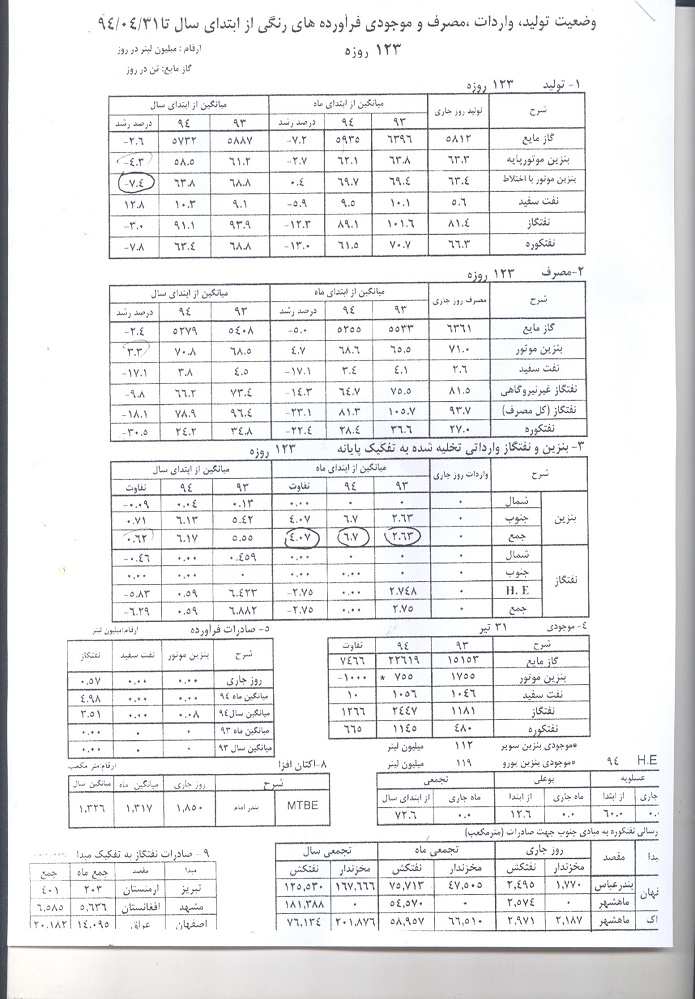 وضعیت تولید، واردات ،مصرف و موجودی فرآورده های رنگی از ابتدای سال تا ۹٤/۰٤/۳۱
۱۲۳ روزه
ارقام : میلیون لیتر در روز
گاز مایع: تن در روز
۱- تولید ۱۲۳ روزه
شرح تولید روز جاری میانگین از ابتدای ماه میانگین از ابتدای سال
۹۳ ۹٤ درصد رشد ۹۳ ۹٤ درصد رشد
گاز مایع ۵۸۱۲ ٦۳۹٦ ۵۹۳۵ -۷.۲ ۵۸۸۷ ۵۷۳۲ -۲.٦
بنزین موتورپایه ٦۳.۳ ٦۳.۸ ٦۲.۱ -۲.۷ ٦۱.۲ ۵۸.۵ -٤.۳
بنزین موتور با اختلاط ٦۳.٤ ٦۹.٤ ٦۹.۷ ۰.٤ ٦۸.۸ ٦۳.۸ -۷.٤
نفت سفید ۵.٦ ۱۰.۱ ۹.۵ -۵.۹ ۹.۱ ۱۰.۳ ۱۲.۸
نفتگاز ۸۱.٤ ۱۰۱.٦ ۸۹.۱ -۱۲.۳ ۹۳.۹ ۹۱.۱ -۳.۰
نفتکوره ٦٦.۳ ۷۰.۷ ٦۱.۵ -۱۳.۰ ٦۸.۸ ٦۳.٤ -۷.۸
۲-مصرف ۱۲۳ روزه
شرح مصرف روز جاری میانگین از ابتدای ماه میانگین از ابتدای سال
۹۳ ۹٤ درصد رشد ۹۳ ۹٤ درصد رشد
گاز مایع ٦۳٦۱ ۵۵۳۳ ۵۲۵۵ -۵.۰ ۵٤۰۸ ۵۲۷۹ -۲.٤
بنزین موتور ۷۱.۰ ٦۵.۵ ٦۸.٦ ٤.۷ ٦۸.۵ ۷۰.۸ ۳.۳
نفت سفید ۲.٦ ٤.۱ ۳.٤ -۱۷.۱ ٤.۵ ۳.۸ -۱۷.۱
نفتگاز غیرنیروگاهی ۸۱.۵ ۷۵.۵ ٦٤.۷ -۱٤.۳ ۷۳.٤ ٦٦.۲ -۹.۸
نفتگاز (کل مصرف) ۹۳.۷ ۱۰۵.۷ ۸۱.۳ -۲۳.۱ ۹٦.٤ ۷۸.۹ -۱۸.۱
نفتکوره ۲۷.۰ ۳٦.٦ ۲۸.٤ -۲۲.٤ ۳٤.۸ ۲٤.۲ -۳۰.۵
۳- بنزین و نفتگاز وارداتی تخلیه شده به تفکیک پایانه ۱۲۳ روزه
شرح واردات روز جاری میانگین از ابتدای ماه میانگین از ابتدای سال
۹۳ ۹٤ تفاوت ۹۳ ۹٤ تفاوت
بنزین شمال ۰ ۰ ۰ ۰.۰۰ ۰.۱۳ ۰.۰٤ -۰.۰۹
جنوب ۰ ۲.٦۳ ٦.۷ ٤.۰۷ ۵.٤۲ ٦.۱۳ ۰.۷۱
جمع ۰ ۲.٦۳ ٦.۷ ٤.۰۷ ۵.۵۵ ٦.۱۷ ۰.٦۲
نفتگاز شمال ۰ ۰ ۰.۰۰ ۰.۰۰ ۰.٤۵۹ ۰.۰۰ -۰.٤٦
جنوب ۰ ۰ ۰ ۰.۰۰ ۰ ۰.۰۰ ۰.۰۰
H. E ۰ ۲.۷٤۸ ۰.۰۰ -۲.۷۵ ٦.٤۲۳ ۰.۵۹ -۵.۸۳
جمع ۰ ۲.۷۵ ۰.۰۰ -۲.۷۵ ٦.۸۸۲ ۰.۵۹ -٦.۲۹
٤- موجودی ۳۱ تیر
شرح ۹۳ ۹٤ تفاوت
گاز مایع ۱۵۱۵۳ ۲۲٦۱۹ ۷٤٦٦
بنزین موتور ۱۷۵۵ ۷۵۵ * -۱۰۰۰
نفت سفید ۱۰٤٦ ۱۰۵٦ ۱۰
نفتگاز ۱۱۸۱ ۲٤٤۷ ۱۲٦٦
نفتکوره ٤۸۰ ۱۱٤۵ ٦٦۵
*موجودی بنزین سوپر ۱۱۲ میلیون لیتر
*موجودی بنزین یورو ۱۱۹ میلیون لیتر
۵- صادرات فرآورده ارقام:میلیون لیتر
شرح بنزین موتور نفت سفید نفتگاز
روز جاری ۰.۰۰ ۰.۰۰ ۰.۵۷
میانگین ماه ۹٤ ۰.۰۰ ۰.۰۰ ٤.۹۸
میانگین سال۹٤ ۰.۰۸ ۰.۰۰ ۳.۵۱
میانگین ماه ۹۳ ۰ ۰ ۰.۰۰
میانگین سال ۹۳ ۰ ۰ ۰.۰۰
H.E ۹٤
عسلویه بوعلی تجمعی
جاری از ابتدا ماه جاری از ابتدا ماه جاری از ابتدای سال
٦۰.۰ ۰.۰ ۱۲.٦ ۰.۰ ۷۲.٦
۸-اکتان افزا ارقام:متر مکعب
شرح روز جاری میانگین ماه میانگین سال
MTBE بندر امام ۱,۸۵۰ ۱,۳۱۷ ۱,۳۲٦
رسالی نفتکوره به مبادی جنوب جهت صادرات (مترمکعب)
بدا مقصد روز جاری تجمعی ماه تجمعی سال
مخزندار نفتکش مخزندار نفتکش مخزندار نفتکش
فهان بندرعباس ۱,۷۷۰ ۲,٤۹۵ ٤۷,۵۰۵ ۷۵,۷۱۳ ۱٦۷,٦٦٦ ۱۲۵,۵۳۰
ماهشهر ۰ ۲,۵۷٤ ۰ ۵٤,۵۷۰ ۰ ۱۸۱,۳۸۸
اک ماهشهر ۲,۱۸۷ ۲,۹۷۱ ٦٦,۵۱۰ ۵۸,۹۵۷ ۲۰۱,۸۷٦ ۷٦,۱۳٤
۹- صادرات نفتگاز به تفکیک مبدا
مبدا مقصد جمع ماه جمع
تبریز ارمنستان ۲۰۳ ٤۰۱
مشهد افغانستان ۵,٦۳٦ ٦,۵۸۵
اصفهان عراق ۱٤,۰۹۵ ۲۰,۱۸۲